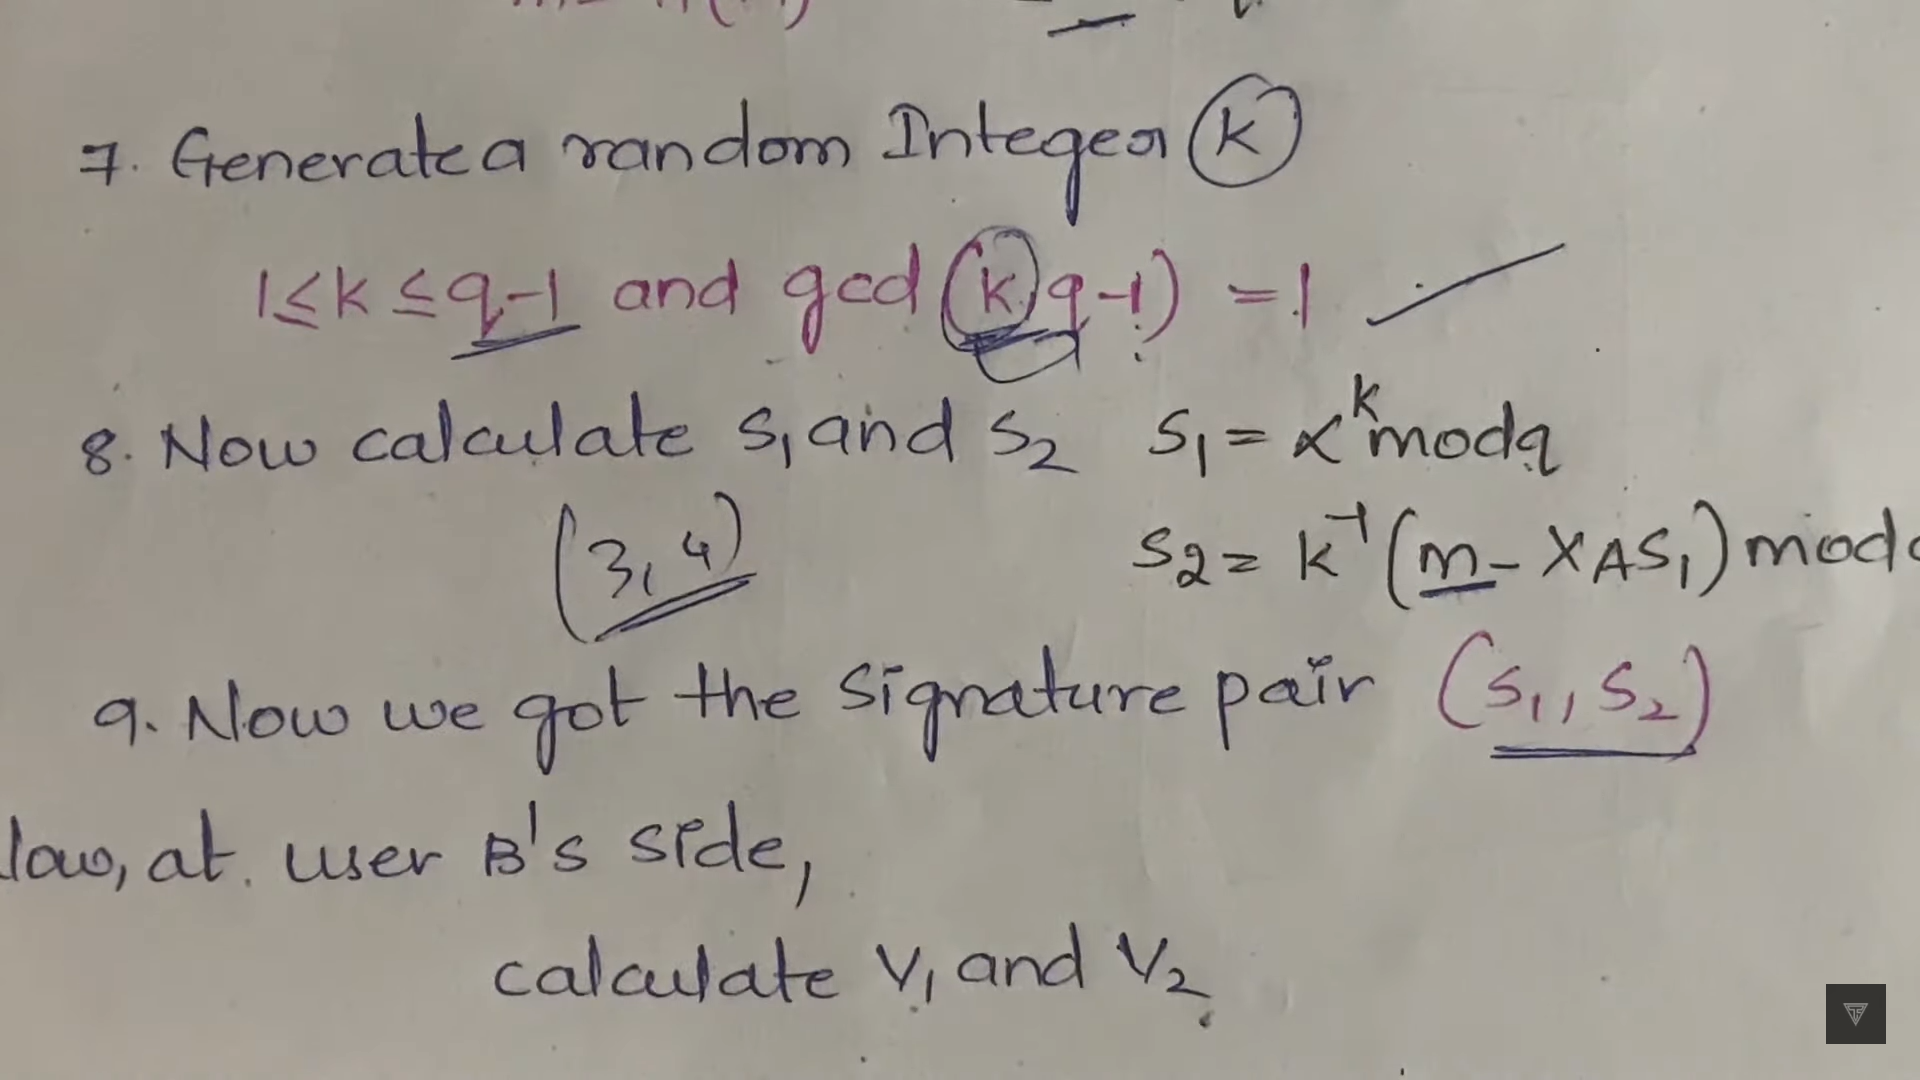 7. Generate a random Integer k
1 ≤ k ≤ q-1 and gcd (k, q-1) = 1
8. Now calculate S₁ and S₂ S₁ = α^k mod q
(3, 4) S₂ = k⁻¹ (m - XAS₁) mod
9. Now we got the signature pair (S₁, S₂)
at user B's side,
calculate V₁ and V₂